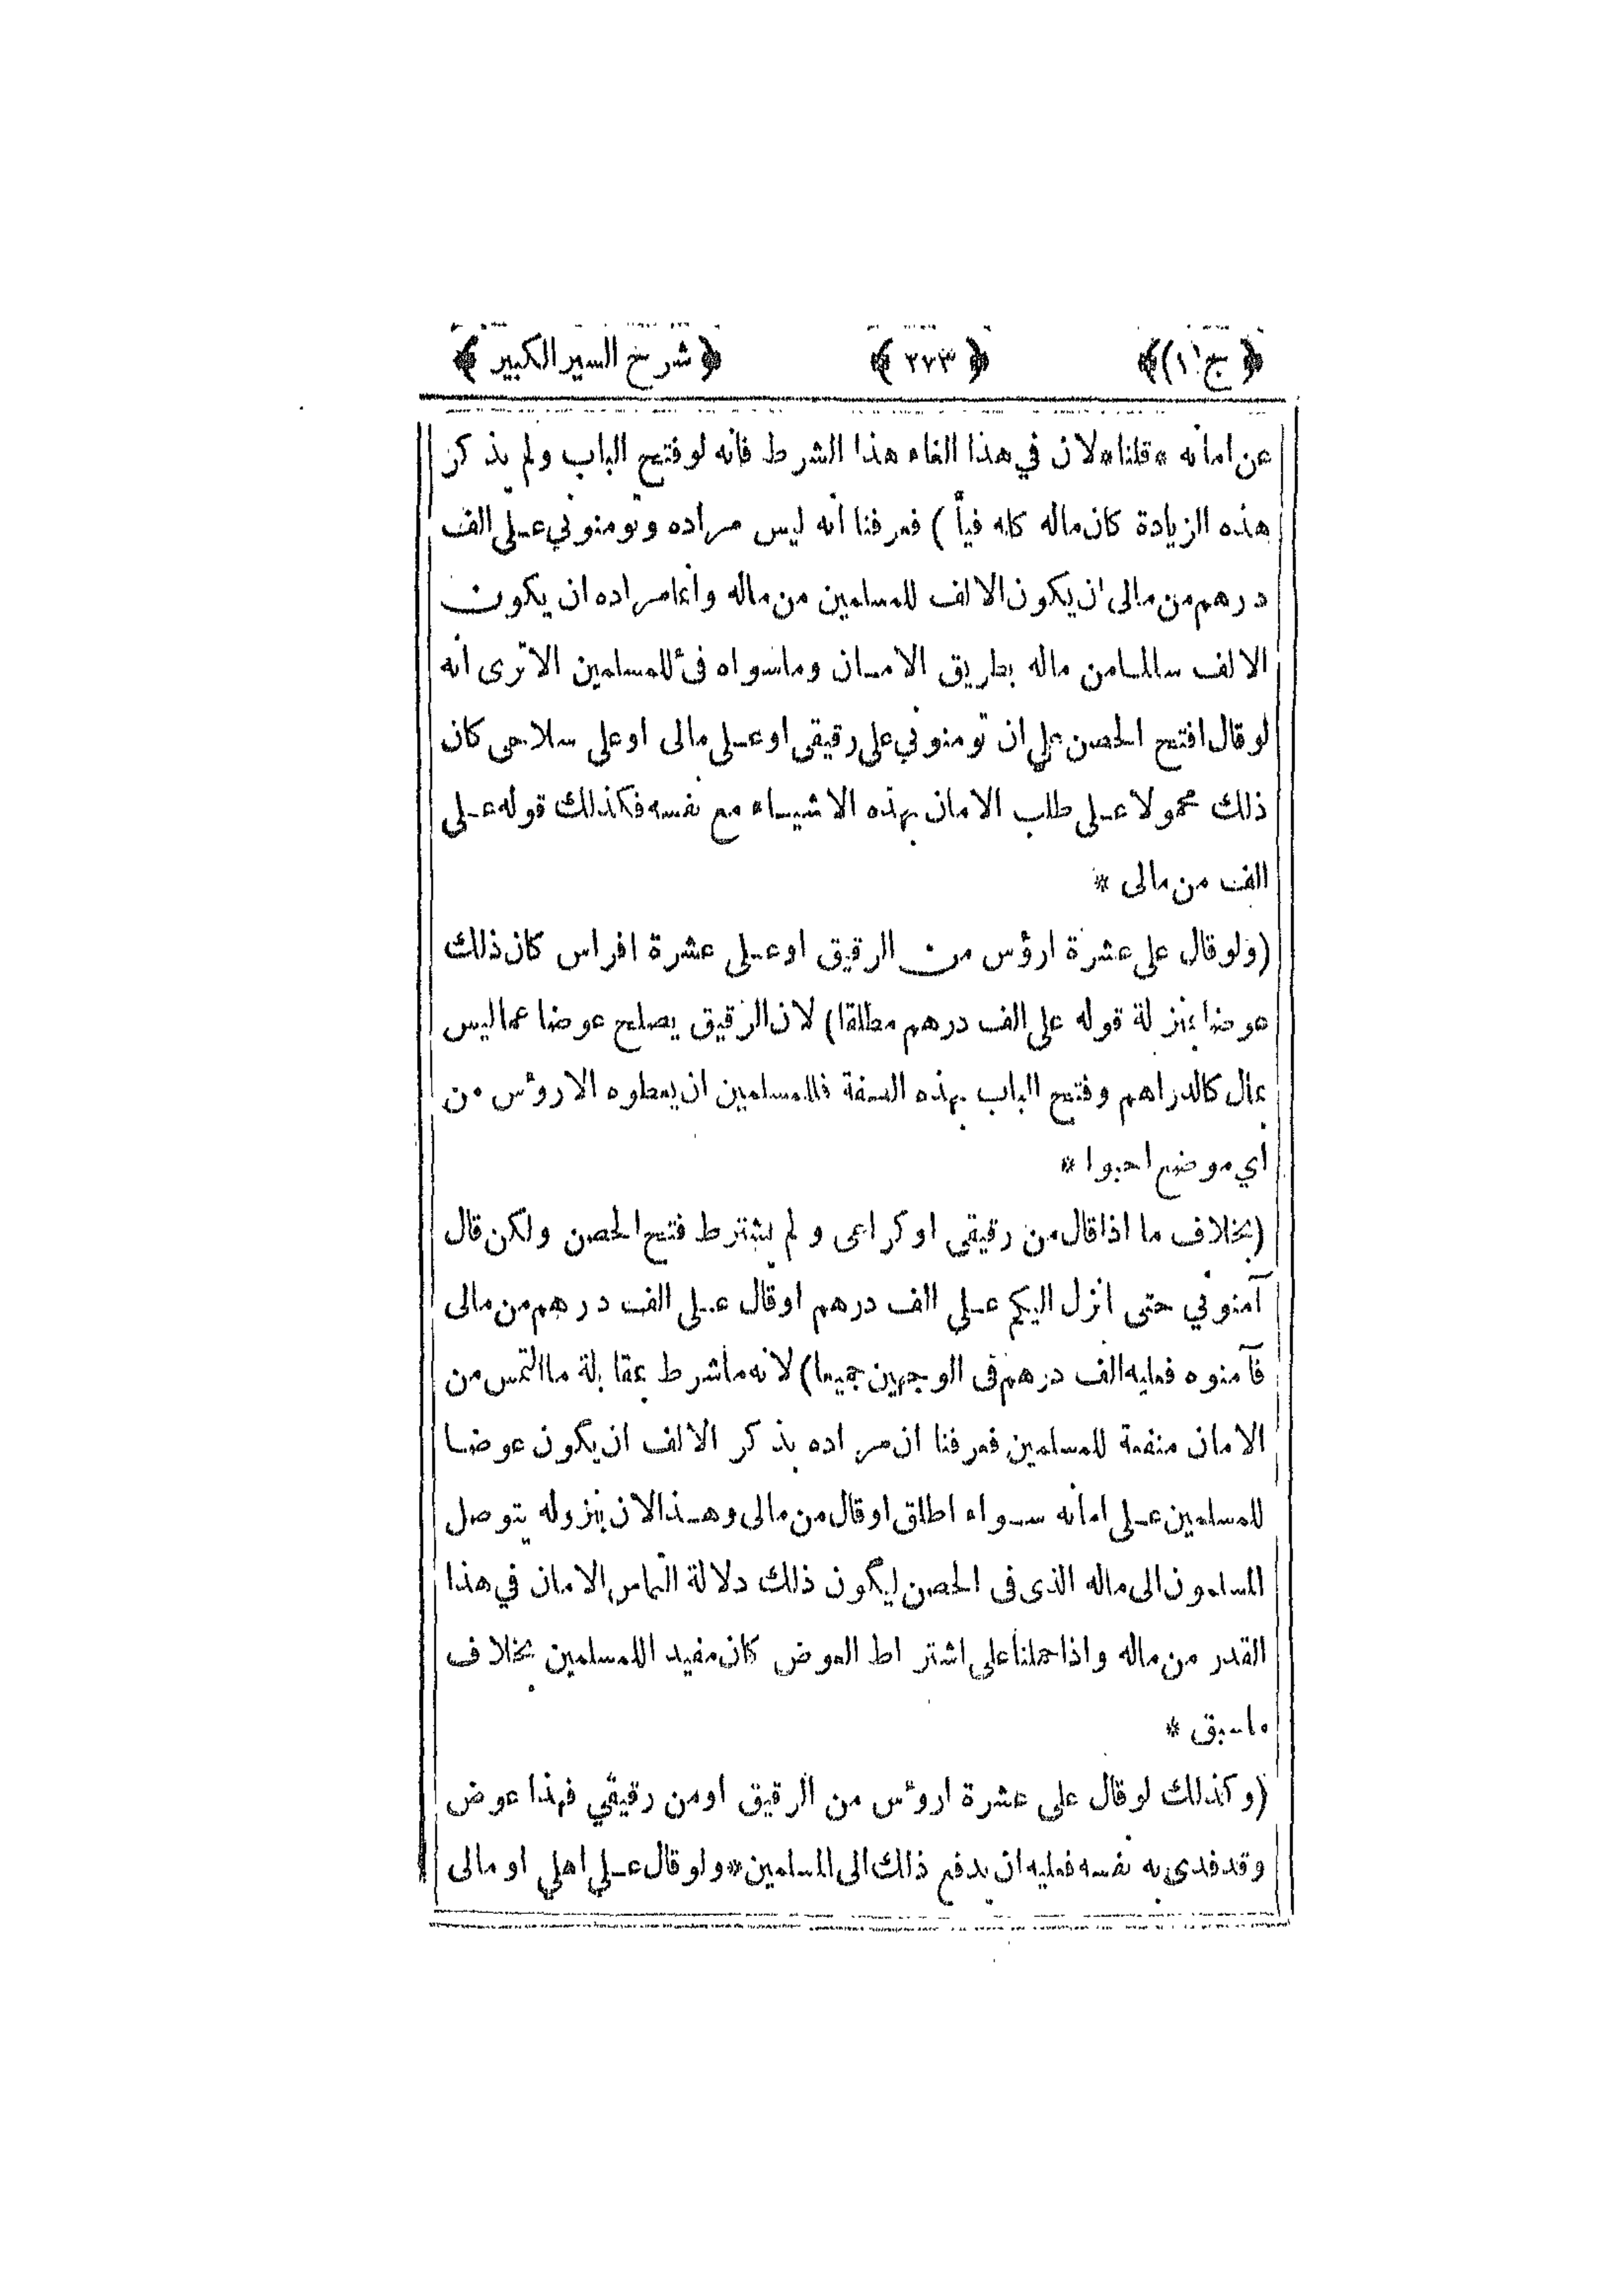 ﴿ ج (١) ﴾ ﴿ ٢٧٣ ﴾ ﴿ شرح السير الكبير ﴾
عن امانه * قلنا * لان في هذا الغاء هذا الشرط فانه لو فتح الباب ولم يذكر
هذه الزيادة كان ماله كله فيأ ) فعرفنا انه ليس مراده وتومنوني على الف
درهم من مالى ان يكون الالف للمسلمين من ماله وانما مراده ان يكون
الالف سالما من ماله بطريق الامان وما سواه فئ للمسلمين الا ترى انه
لو قال افتح الحصن على ان تومنوني على رقيقى او على مالى او على سلاحى كان
ذلك محمولا على طلب الامان بهذه الاشياء مع نفسه فكذلك قوله على
الف من مالى *
(ولو قال على عشرة ارؤس من الرقيق او على عشرة افراس كان ذلك
عوضا بمنزلة قوله على الف درهم مطلقا) لان الرقيق يصلح عوضا عما ليس
بمال كالدراهم وفتح الباب بهذه الصفة فللمسلمين ان يعطوه الارؤس من
اي موضع احبوا *
(بخلاف ما اذا قال من رقيقى او كراعى و لم يشترط فتح الحصن ولكن قال
آمنوني حتى انزل اليكم على الف درهم او قال على الف درهم من مالى
فآمنوه فعليه الف درهم فى الوجهين جميعا) لانه ما شرط بمقابلة ما التمس من
الامان منفعة للمسلمين فعرفنا ان مراده بذكر الالف ان يكون عوضا
للمسلمين على امانه سواء اطلق او قال من مالى وهذا لان بنزوله يتوصل
المسلمون الى ماله الذى فى الحصن ليكون ذلك دلالة التماس الامان في هذا
القدر من ماله واذا حملنا على اشتراط العوض كان مفيدا للمسلمين بخلاف
ما سبق *
(وكذلك لو قال على عشرة ارؤس من الرقيق او من رقيقي فهذا عوض
وقد فدى به نفسه فعليه ان يدفع ذلك الى المسلمين * ولو قال على اهلي او مالى